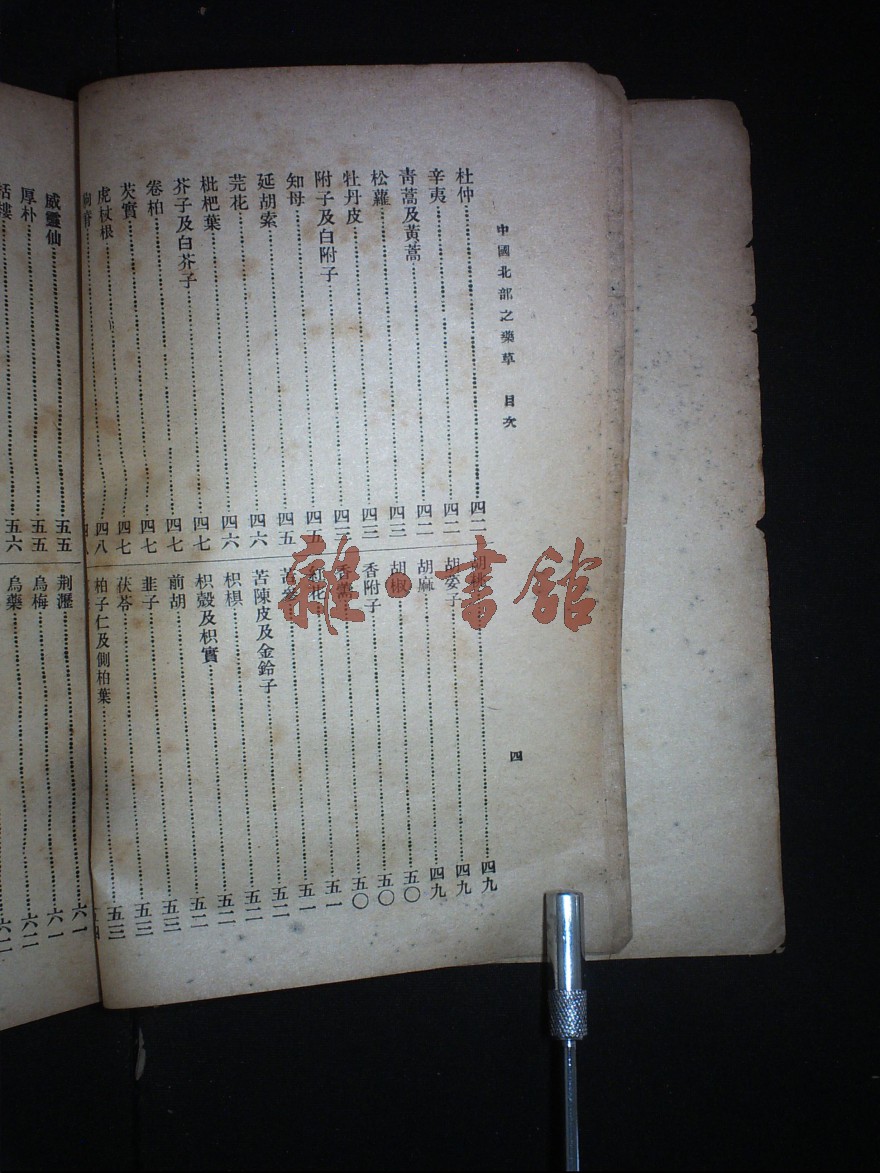 中國北部之藥草 目次
四
杜仲 四二
辛夷 四二
靑蒿及黃蒿 四二
松蘿 四三
牡丹皮 四三
附子及白附子
知母 四五
延胡索 四六
芫花 四六
枇杷葉 四七
芥子及白芥子 四七
卷柏 四七
芡實 四七
虎杖根 四八
四九
胡荽子 四九
胡麻 四九
胡椒 五〇
香附子 五〇
香薷 五一
紅花 五一
苦參 五一
苦陳皮及金鈴子 五二
枳椇 五二
枳殼及枳實 五二
前胡 五三
韭子 五三
茯苓 五三
柏子仁及側柏葉
威靈仙 五五
厚朴 五五
栝樓 五六
荆瀝 六一
烏梅 六一
烏藥 六二
雜·書館